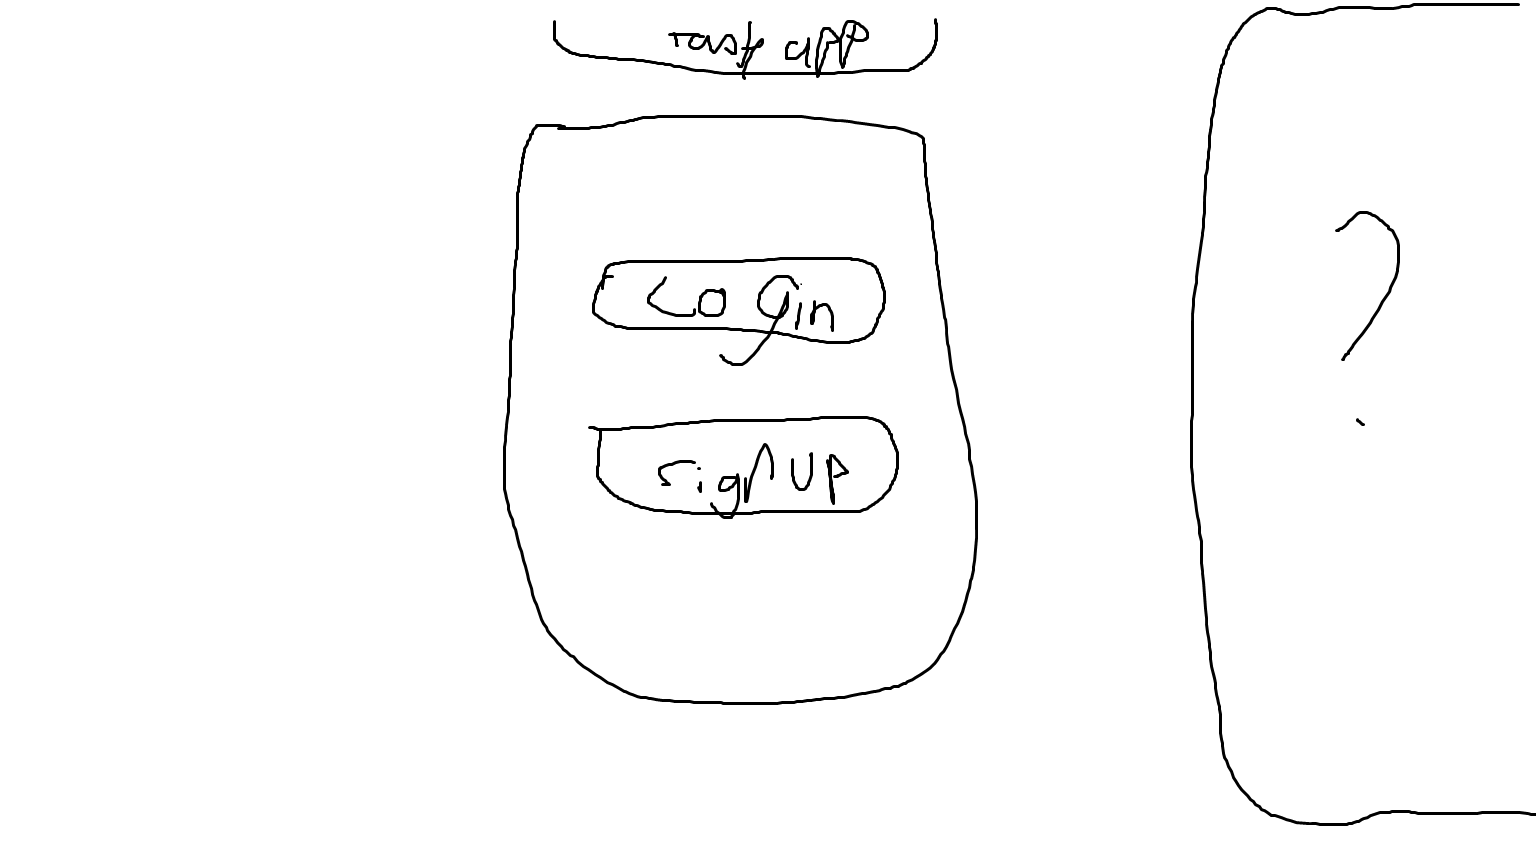 Task app
Login
sign up
?